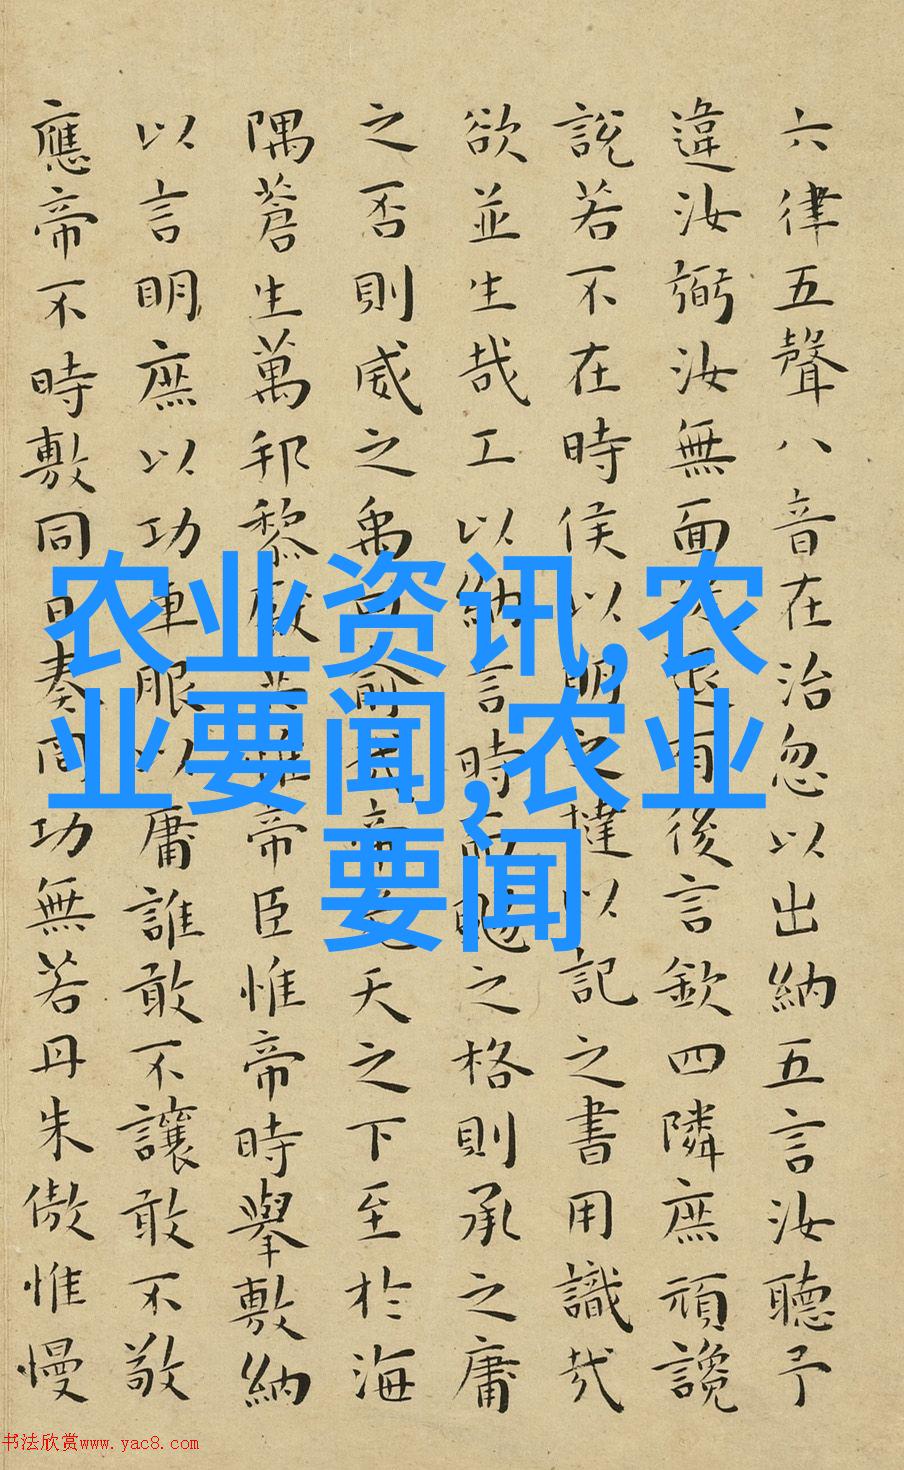 六律五聲八音在治忽以出納五言汝聽予
違汝弼汝無面退有後言欽四隣庶頑讒
說若不在時侯以明之撻以記之書用識哉
欲並生哉工以納言時而颺之格則承之庸
之否則威之禹曰俞哉帝光天之下至於海
隅蒼生萬邦黎共惟帝臣惟帝時舉敷納
以言明庶以功車服以庸誰敢不讓敢不敬
應帝不時敷同日奏罔功無若丹朱傲惟慢
农业资讯,农
业要闻,农业
要闻
书法欣赏www.yac8.com